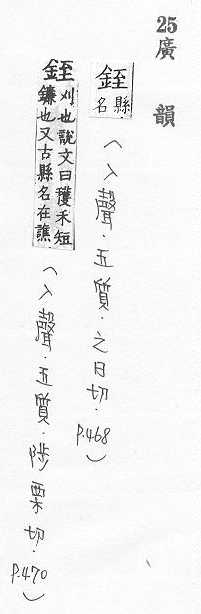 25
廣韻
銍 縣名
(入聲.五質.之日切.P.468)
銍 刈也說文曰穫禾短
鎌也又古縣名在譙
(入聲.五質.陟栗切.P.470)